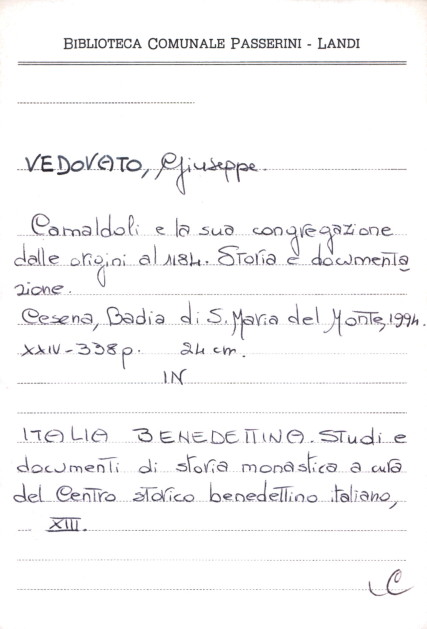 BIBLIOTECA COMUNALE PASSERINI - LANDI
VEDOVATO, Giuseppe.
Camaldoli e la sua congregazione
dalle origini al 1184. Storia e documenta
zione.
Cesena, Badia di S. Maria del Monte, 1994.
XXIV-338 p. 24 cm.
IN
ITALIA BENEDETTINA. Studi e
documenti di storia monastica a cura
del Centro storico benedettino italiano,
XIII.
C